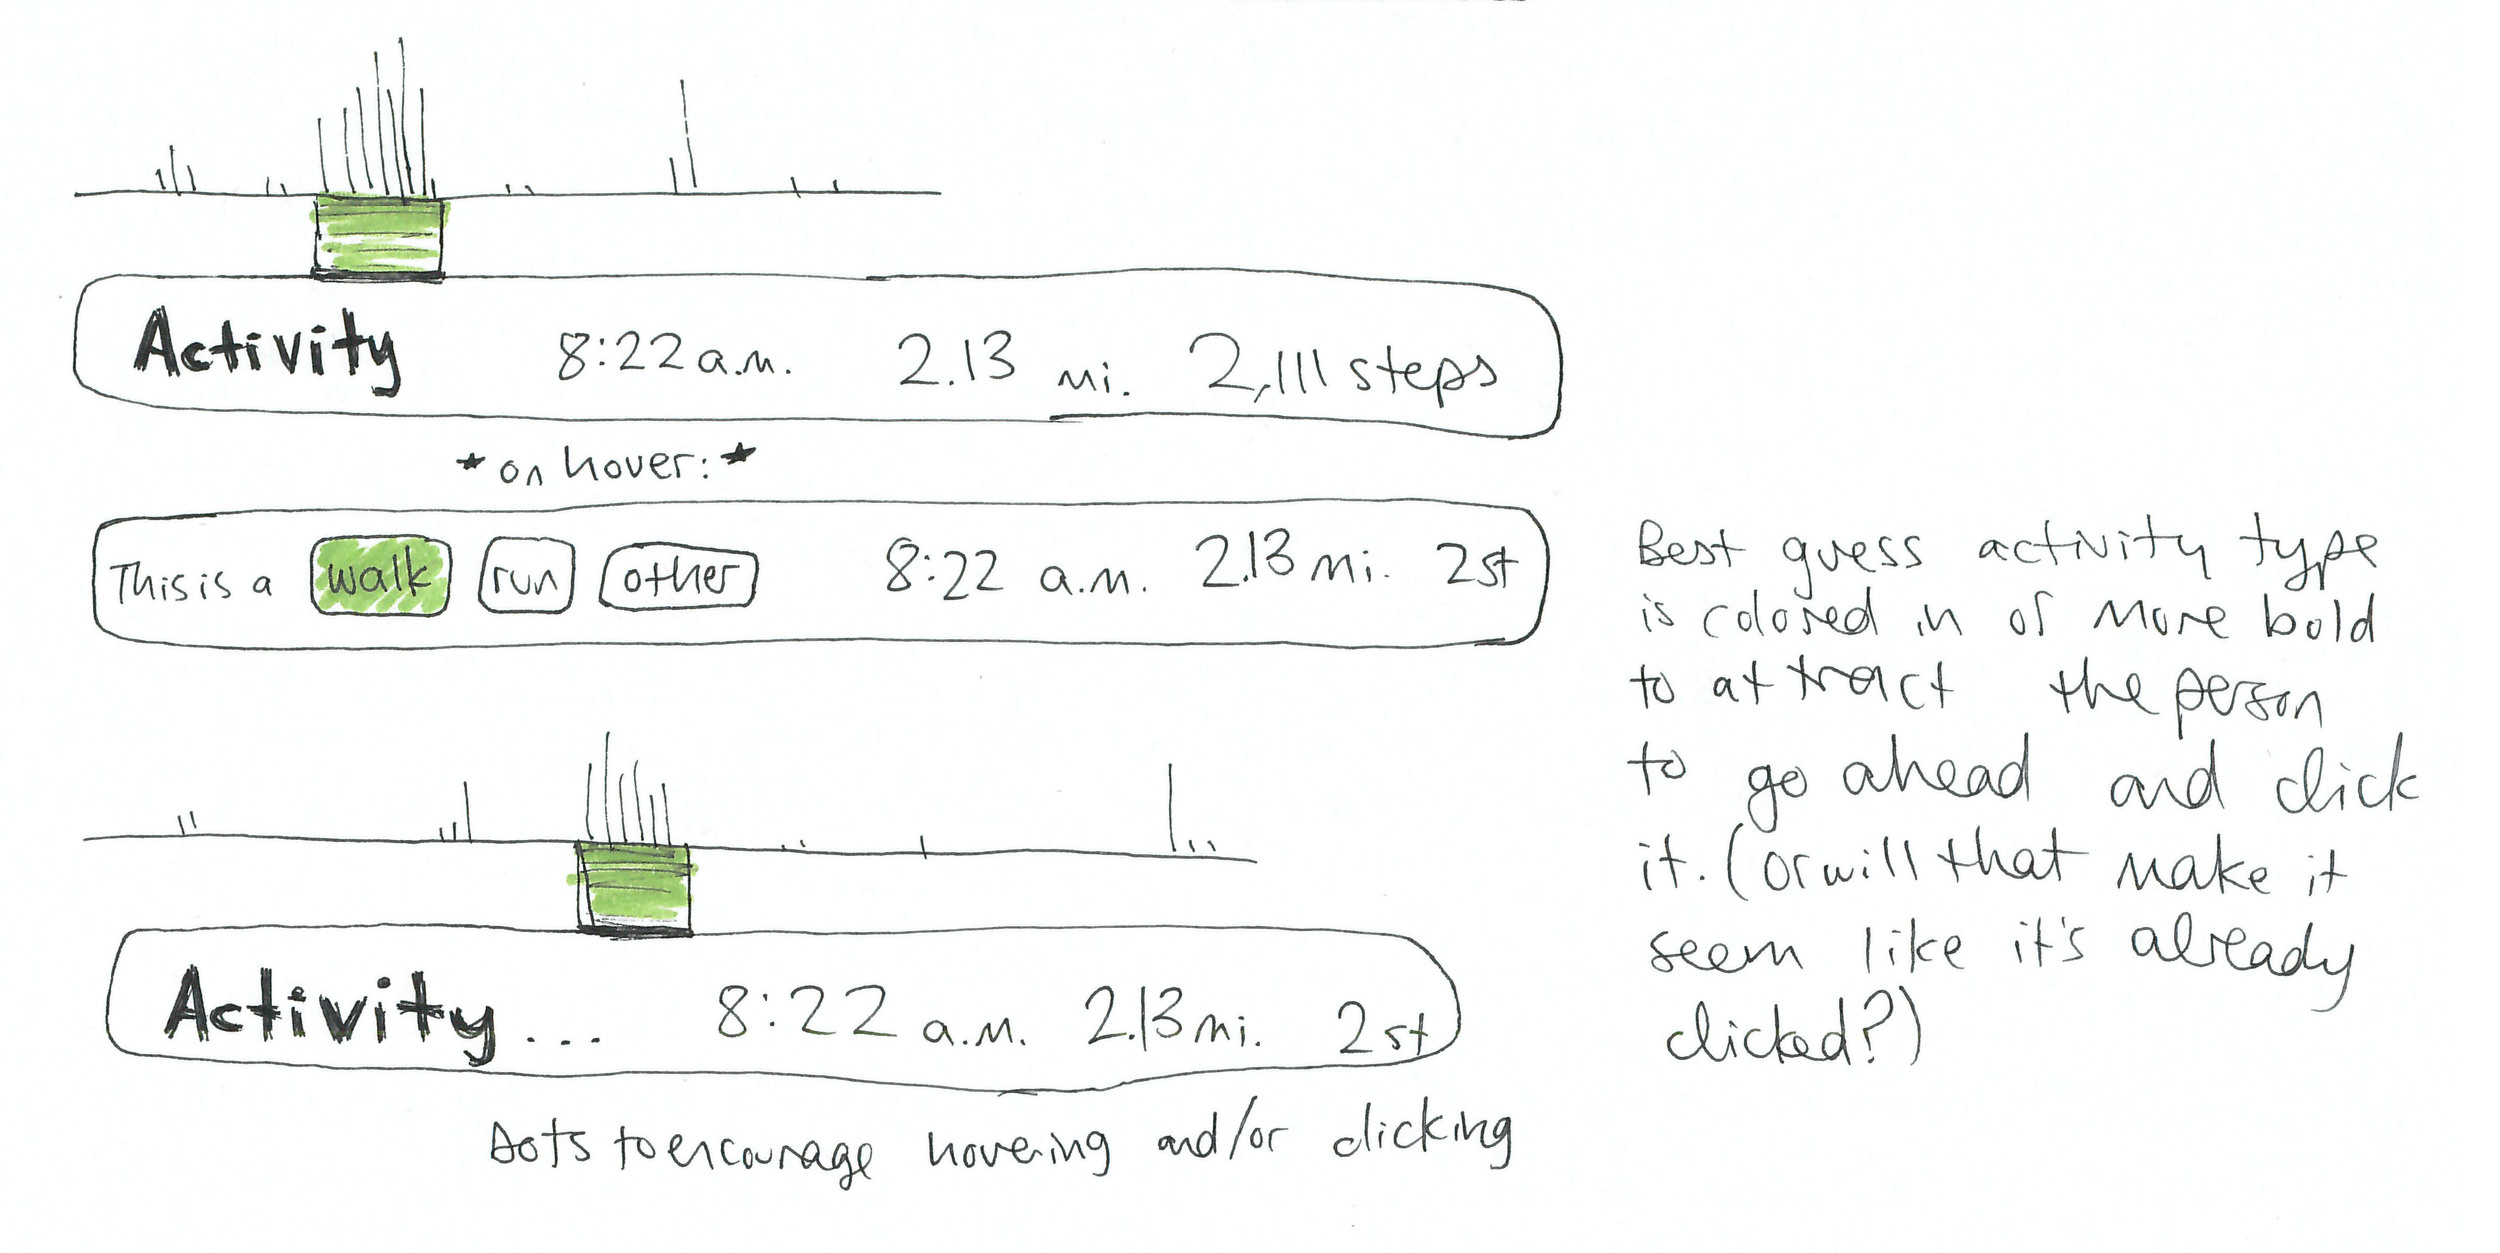 Activity 8:22 a.m. 2.13 mi. 2,111 steps
* on hover: *
This is a walk run other 8:22 a.m. 2.13 mi. 2 st
Activity... 8:22 a.m. 2.13 mi. 2 st
Dots to encourage hovering and/or clicking
Best guess activity type
is colored in or more bold
to attract the person
to go ahead and click
it. (or will that make it
seem like it's already
clicked?)